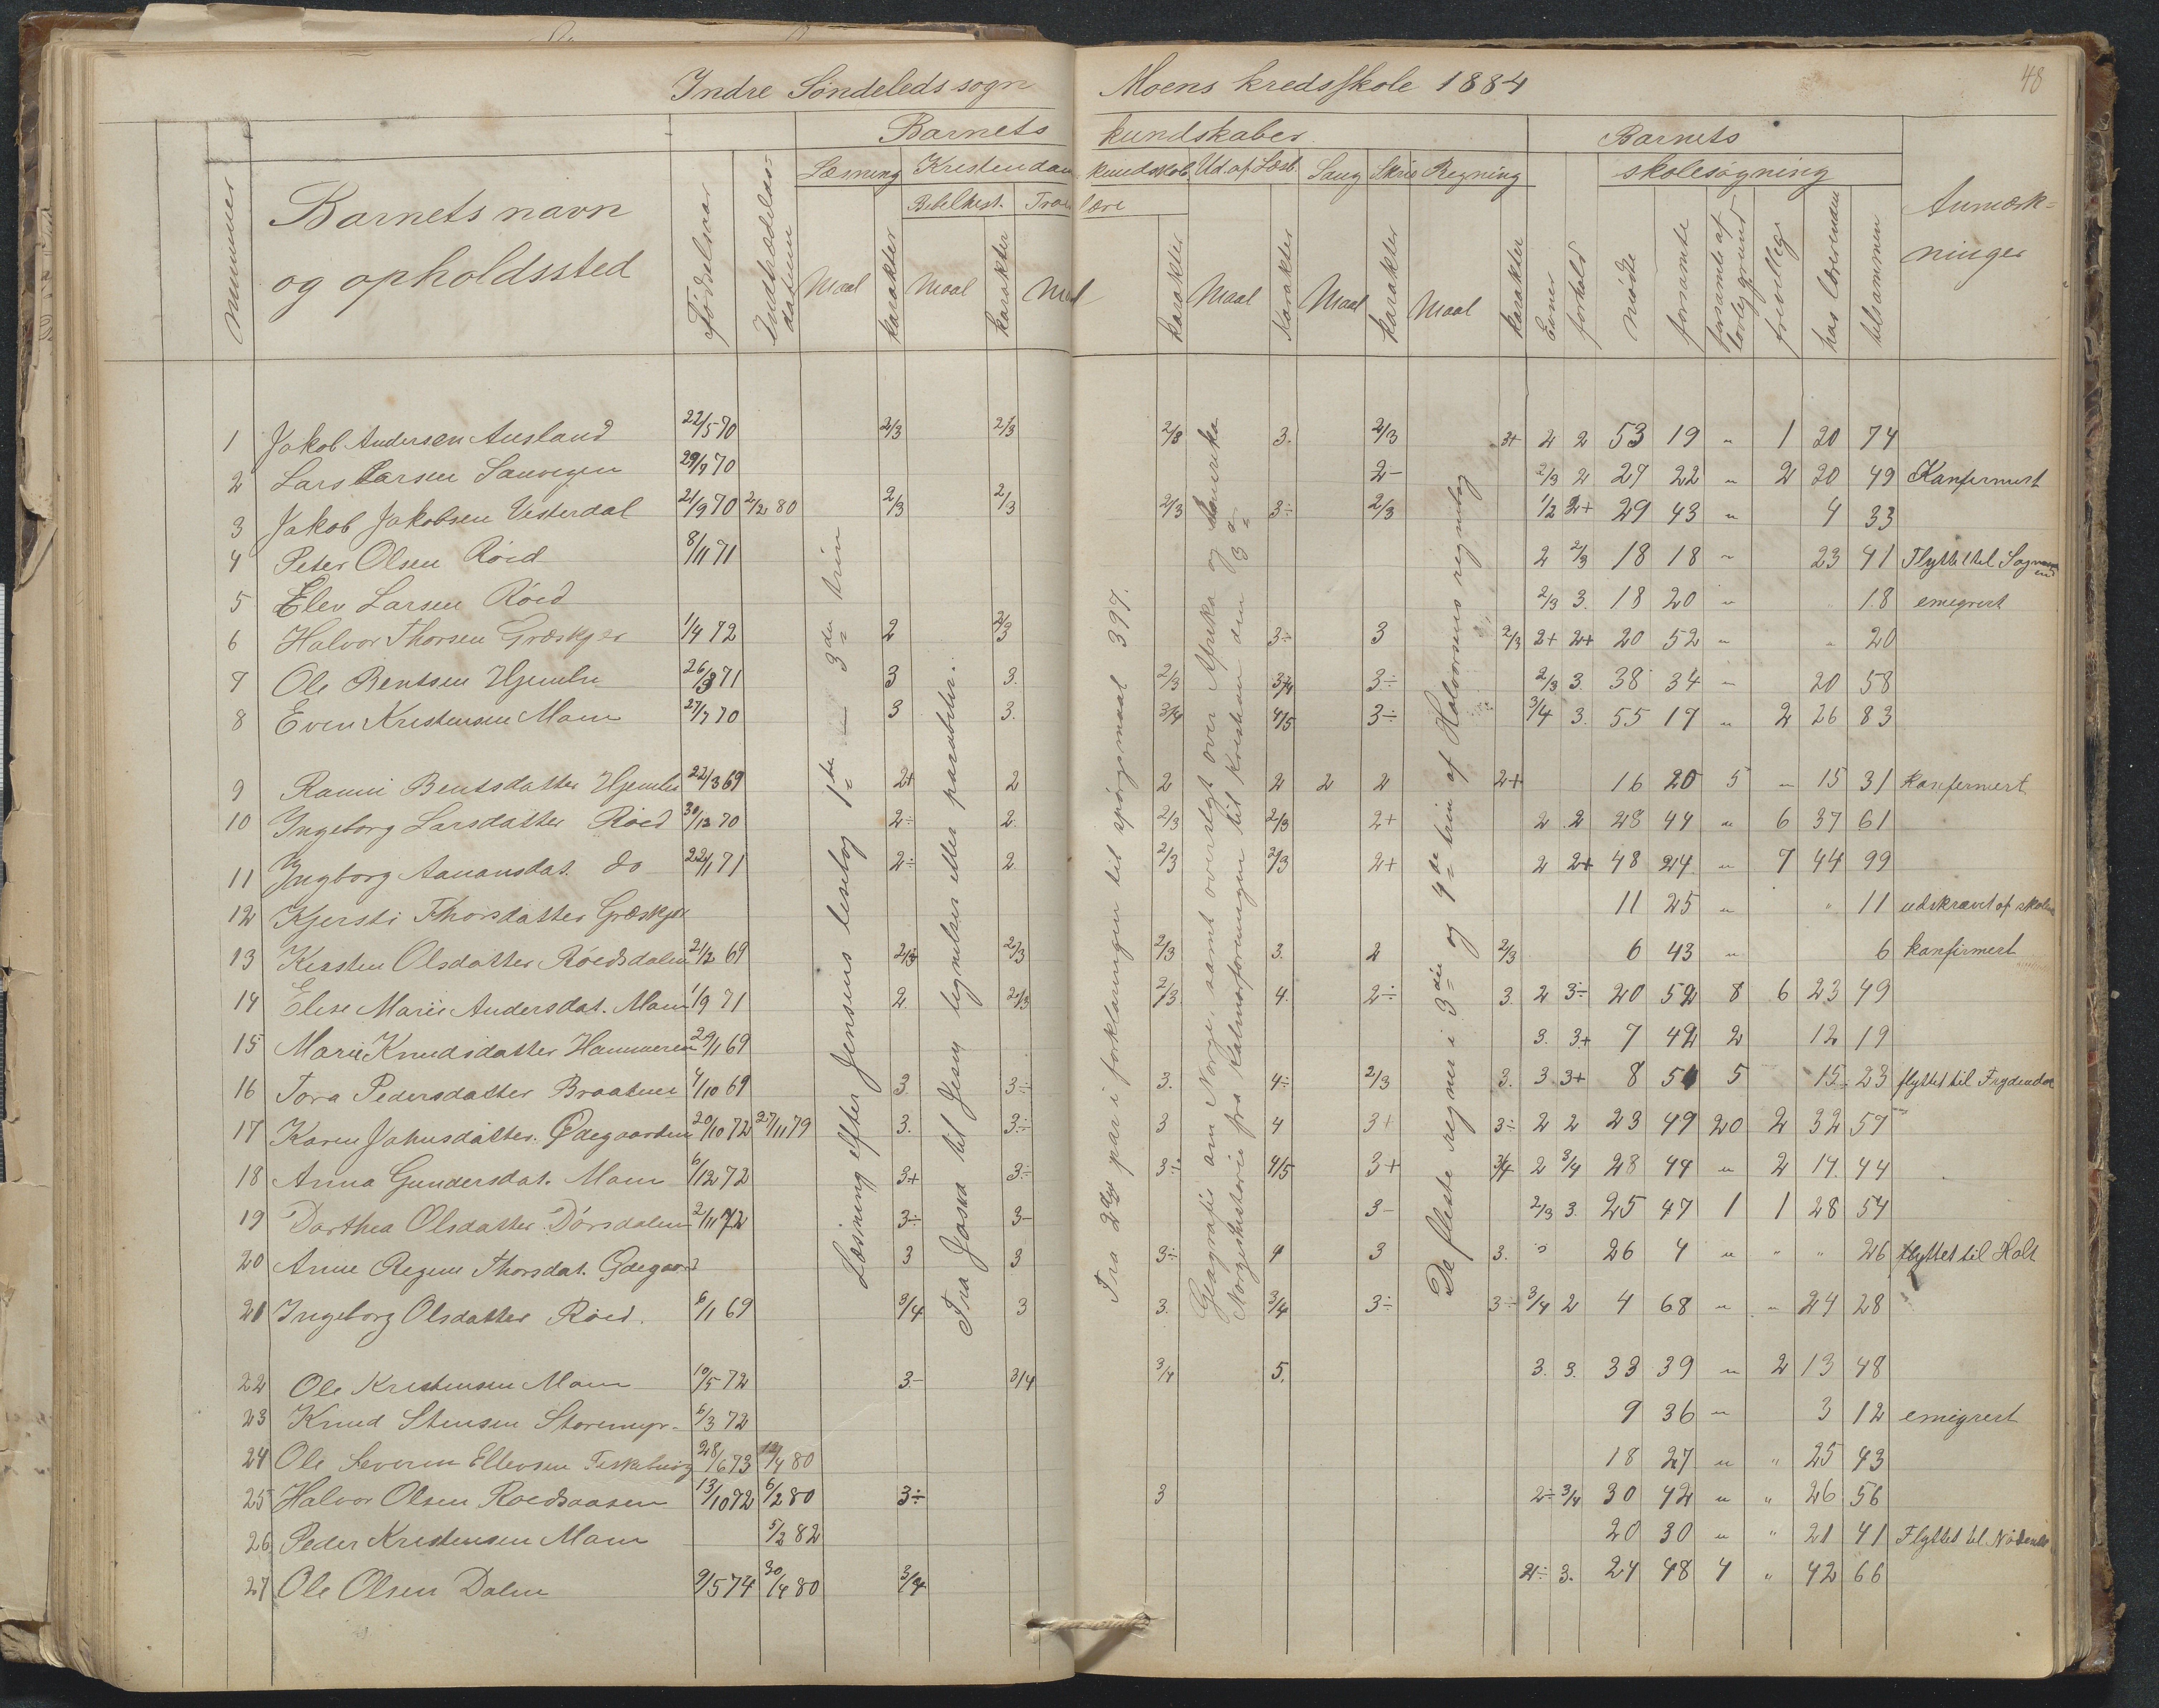 48
Indre Søndeleds sogn Moens kredsskole 1884
Barnets kundskaber Barnets
Læsning Kristendom kundskab Ud. af Læseb. Sang Skriv Regning skolesøgning
Bibelhist. Troeslære
Nummer
Barnets navn
og opholdssted
Fødselsaar
Indtrædelses-
datum
Maal karakter Maal karakter Maal karakter Maal karakter Maal karakter Maal karakter
Evner forhold mødte forsømte forsømte af lovlig grund frivillige har læsenden tilsammen
Anmærk-
ninger
1 Jakob Andersen Ausland 22/5 70 2/3 2/3 2/3 3. 2/3 3+ 2 2 53 19 " 1 20 74
2 Lars Larsen 29/7 70 2- 2/3 2 27 22 " 2 20 49 Konfirmert
3 Jakob Jakobsen Vesterdal 21/9 70 2/2 80 2/3 2/3 2/3 3÷ 2/3 1/2 2+ 29 43 " 4 33
4 Peter Olsen Røed 8/11 71 2 2/3 18 18 " 23 41 Flyttet til
5 Elev Larsen Røed 2/3 3. 18 20 " 18 emigrert
6 Halvor Thorsen Græskjer 1/4 72 2 2/3 3÷ 3 2/3 2+ 2+ 20 52 " " 20
7 Ole Bentsen Hjemlie 26/3 71 3 3. 2/3 3/4 3÷ 2/3 3. 38 34 " 20 58
8 Even Kristensen Moen 27/7 70 3 3. 3/4 4/5 3÷ 3/4 3. 55 17 " 2 26 83
9 Bentsdatter Hjemlie 22/3 69 2+ 2 2 2 2 2 2+ 16 20 5 " 15 31 konfermert
10 Ingeborg Larsdatter Røed 30/12 70 2÷ 2. 2/3 2/3 2+ 2 2 28 44 " 6 37 61
11 Ingborg Aanonsdat. do 22/1 71 2÷ 2 2/3 2/3 2+ 2 2+ 48 24 " 7 44 99
12 Kjersti Thorsdatter Græskjer 11 25 " " 11 udskrevet af skolen
13 Kirsten Olsdatter Røedsdalen 2/2 69 2/3 2/3 2/3 3. 2 2/3 6 43 " 6 konfirmert
14 Elise Marie Andersdat. Moen 1/9 71 2 2/3 2/3 4. 2÷ 3. 2 3÷ 20 52 8 6 23 49
15 Marie Knudsdatter Hammeren 29/1 69 3. 3+ 7 42 2 12 19
16 Tora Pedersdatter Braaten 4/10 69 3 3÷ 3. 4÷ 2/3 3. 3 3+ 8 51 5 15 23 flyttet til
17 Karen Johnsdatter Ødegaarden 20/10 72 27/11 79 3. 3÷ 3 4 3+ 3÷ 2 2 23 49 20 2 32 57
18 Anna Gundersdat. Moen 6/12 72 3+ 3÷ 3÷ 4/5 3+ 3/4 2 3/4 28 44 " 2 14 44
19 Dorthea Olsdatter Dørsdalen 2/11 72 3÷ 3- 3- 2/3 3. 25 47 1 1 28 54
20 Anne Regine Thorsdat. Ødegaard 3 3 3÷ 4 3 3. 26 4 " " " 26 flyttet til Holt
21 Ingeborg Olsdatter Røed. 6/1 69 3/4 3 3. 3/4 3÷ 3÷ 3/4 2 4 68 " " 24 28
22 Ole Kristensen Moen 10/5 72 3- 3/4 3/4 5. 3. 3. 33 39 " 2 13 48
23 Knud Stensen Storemyr 6/3 72 9 36 " 3 12 emigrert
24 Ole Severin Ellevsen 28/6 73 12/4 80 18 27 " " 25 43
25 Halvor Olsen Roedsaasen 13/10 72 6/2 80 3÷ 3 2÷ 3/4 30 42 " " 26 56
26 Peder Kristensen Moen 5/2 82 20 30 " " 21 41 Flyttet til
27 Ole Olsen Dalen 9/5 74 30/4 80 3/4 2÷ 3. 24 48 4 " 42 66
Læsning efter Jensens læsebog 1ste — 3die trin
Fra Josva til Jesu lignelser eller parabeler.
Fra 2den part i forklaringen til spörgsmaal 397.
Geografie om Norge, samt oversigt over Afrika og Amerika
Norgeshistorie fra Kalmarforeningen til Kristian den 3die
De fleste regner i 3die og 4de trin af Halvorsens regnebog